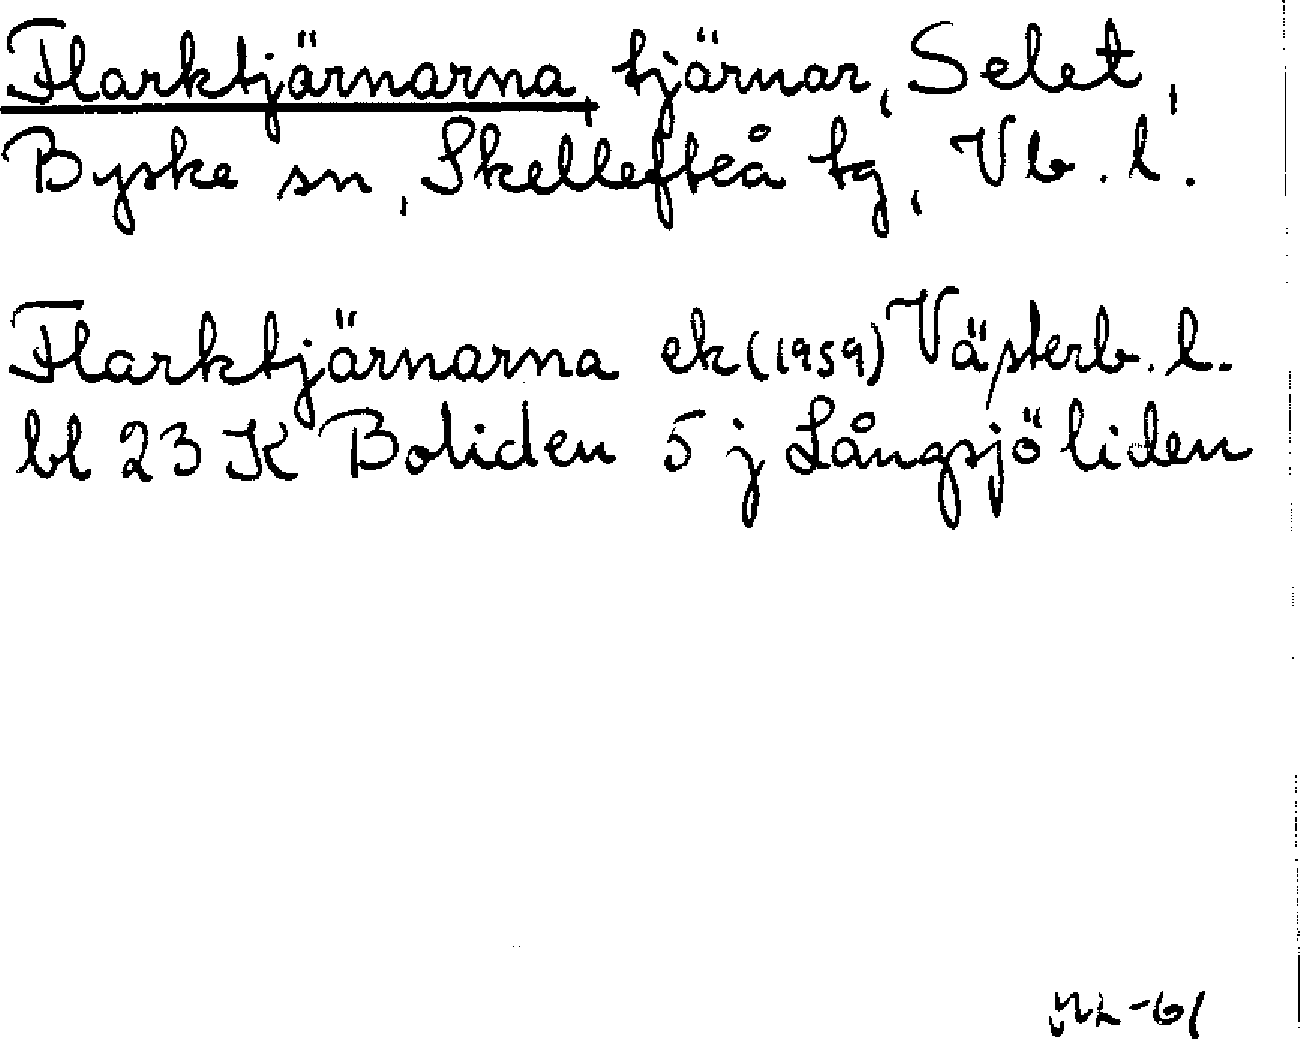 Flarktjärnarna, tjärnar, Selet,
Byske sn, Skellefteå tg, Vb. l.
Flarktjärnarna ek (1959) Västerb. l.
bl 23 K Boliden 5 j Långsjöliden
-61